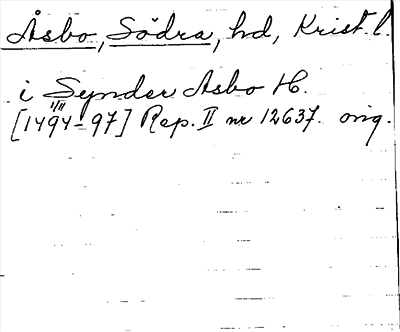 Åsbo, Södra, hd, Krist. l.
i Synder Asbo H.
[1494-97] Rep. II nr 12637. orig.